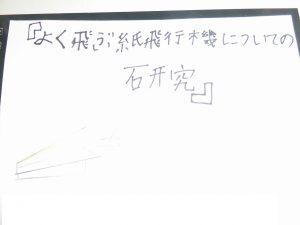 『よく飛ぶ紙飛行機についての
研究』